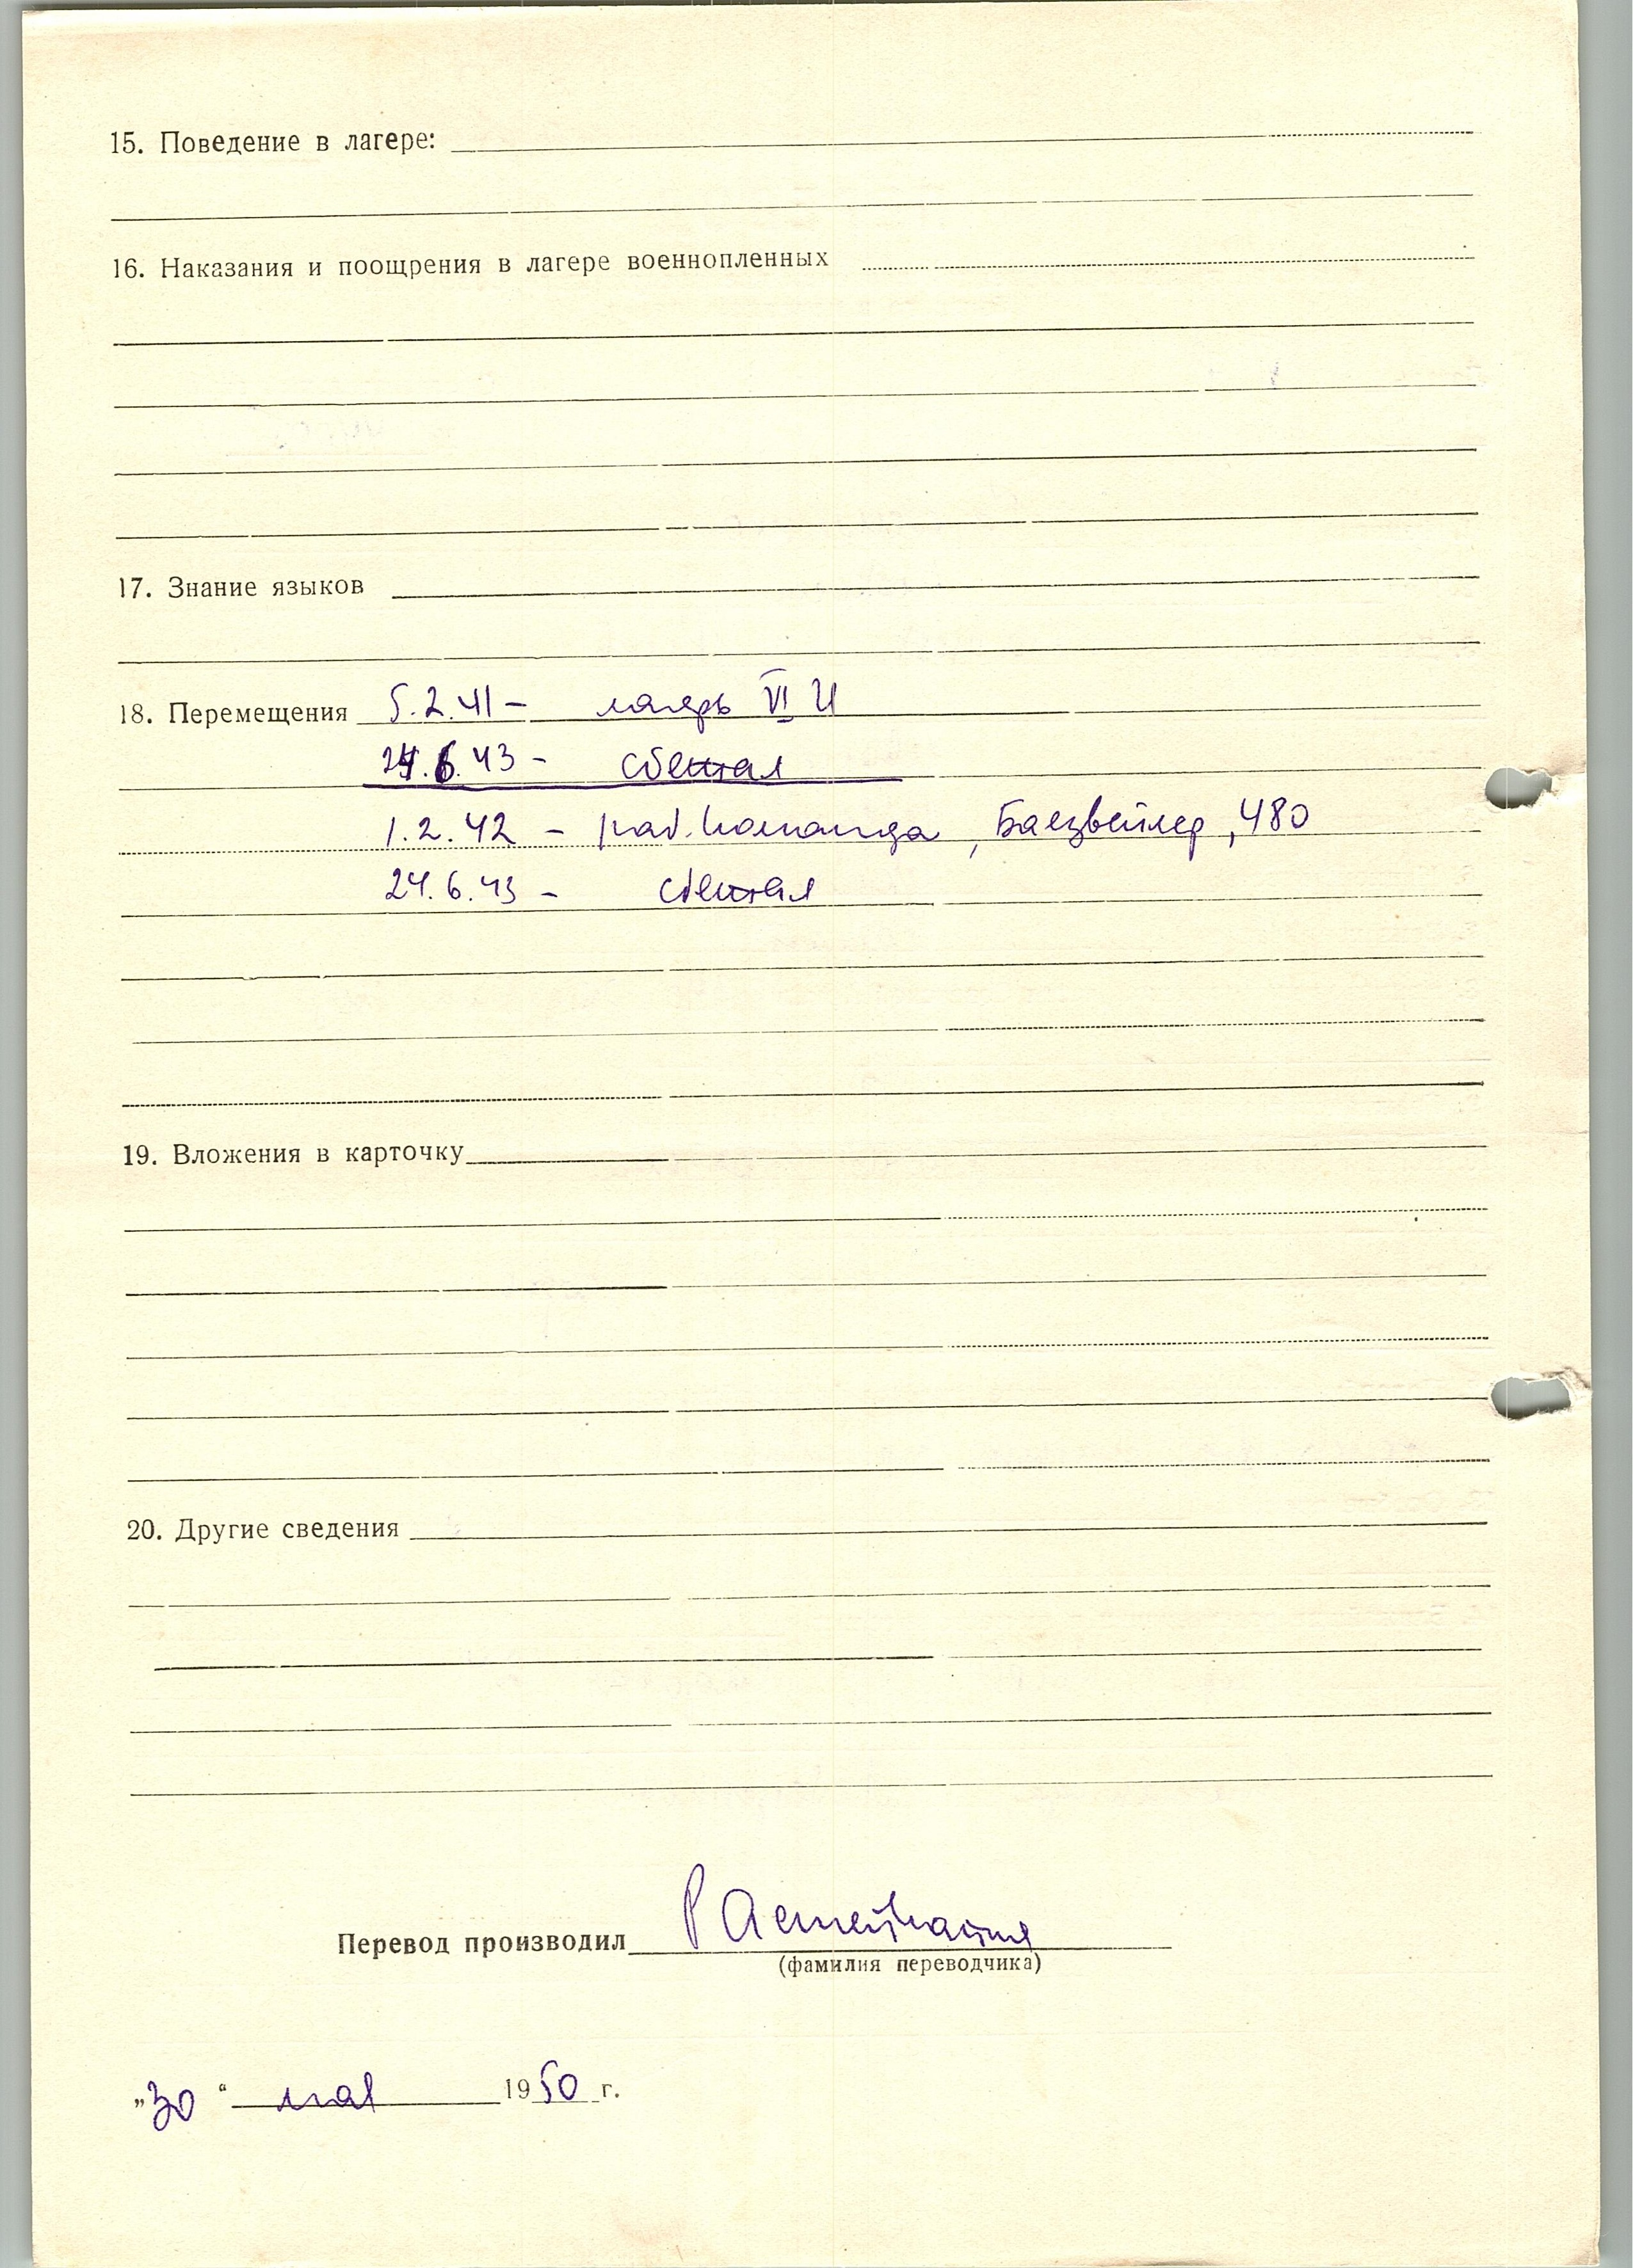 15. Поведение в лагере:
16. Наказания и поощрения в лагере военнопленных
17. Знание языков
18. Перемещения 5.2.41 – лагерь VI И
24.6.43 – сбежал
1.2.42 – раб. команда, Баезвейлер, 480
24.6.43 – сбежал
19. Вложения в карточку
20. Другие сведения
Перевод производил
(фамилия переводчика)
„30“ мая 1950 г.